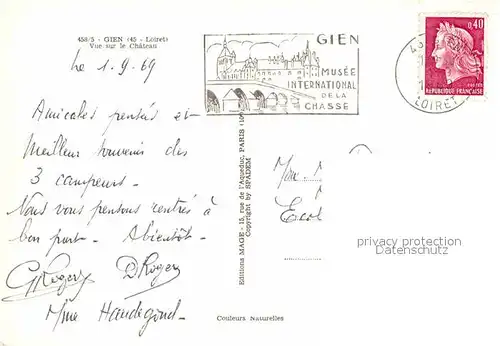 458/5 - GIEN (45 - Loiret)
Vue sur le Château
Le 1.9.69
Amicales pensées et
Meilleur souvenir des
3 campeurs.
Nous vous pensons rentrés à
bon port. Abientôt.
G Roger D Roger
Mme Handigond
GIEN
MUSÉE
INTERNATIONAL
DE LA
CHASSE
0,40
REPUBLIQUE FRANÇAISE
LOIRET
Editions MAGE - 15, rue de l'Aqueduc, PARIS
Copyright by SPADEM
Mme
Ecol
privacy protection
AnsichtskartenPool
Couleurs Naturelles